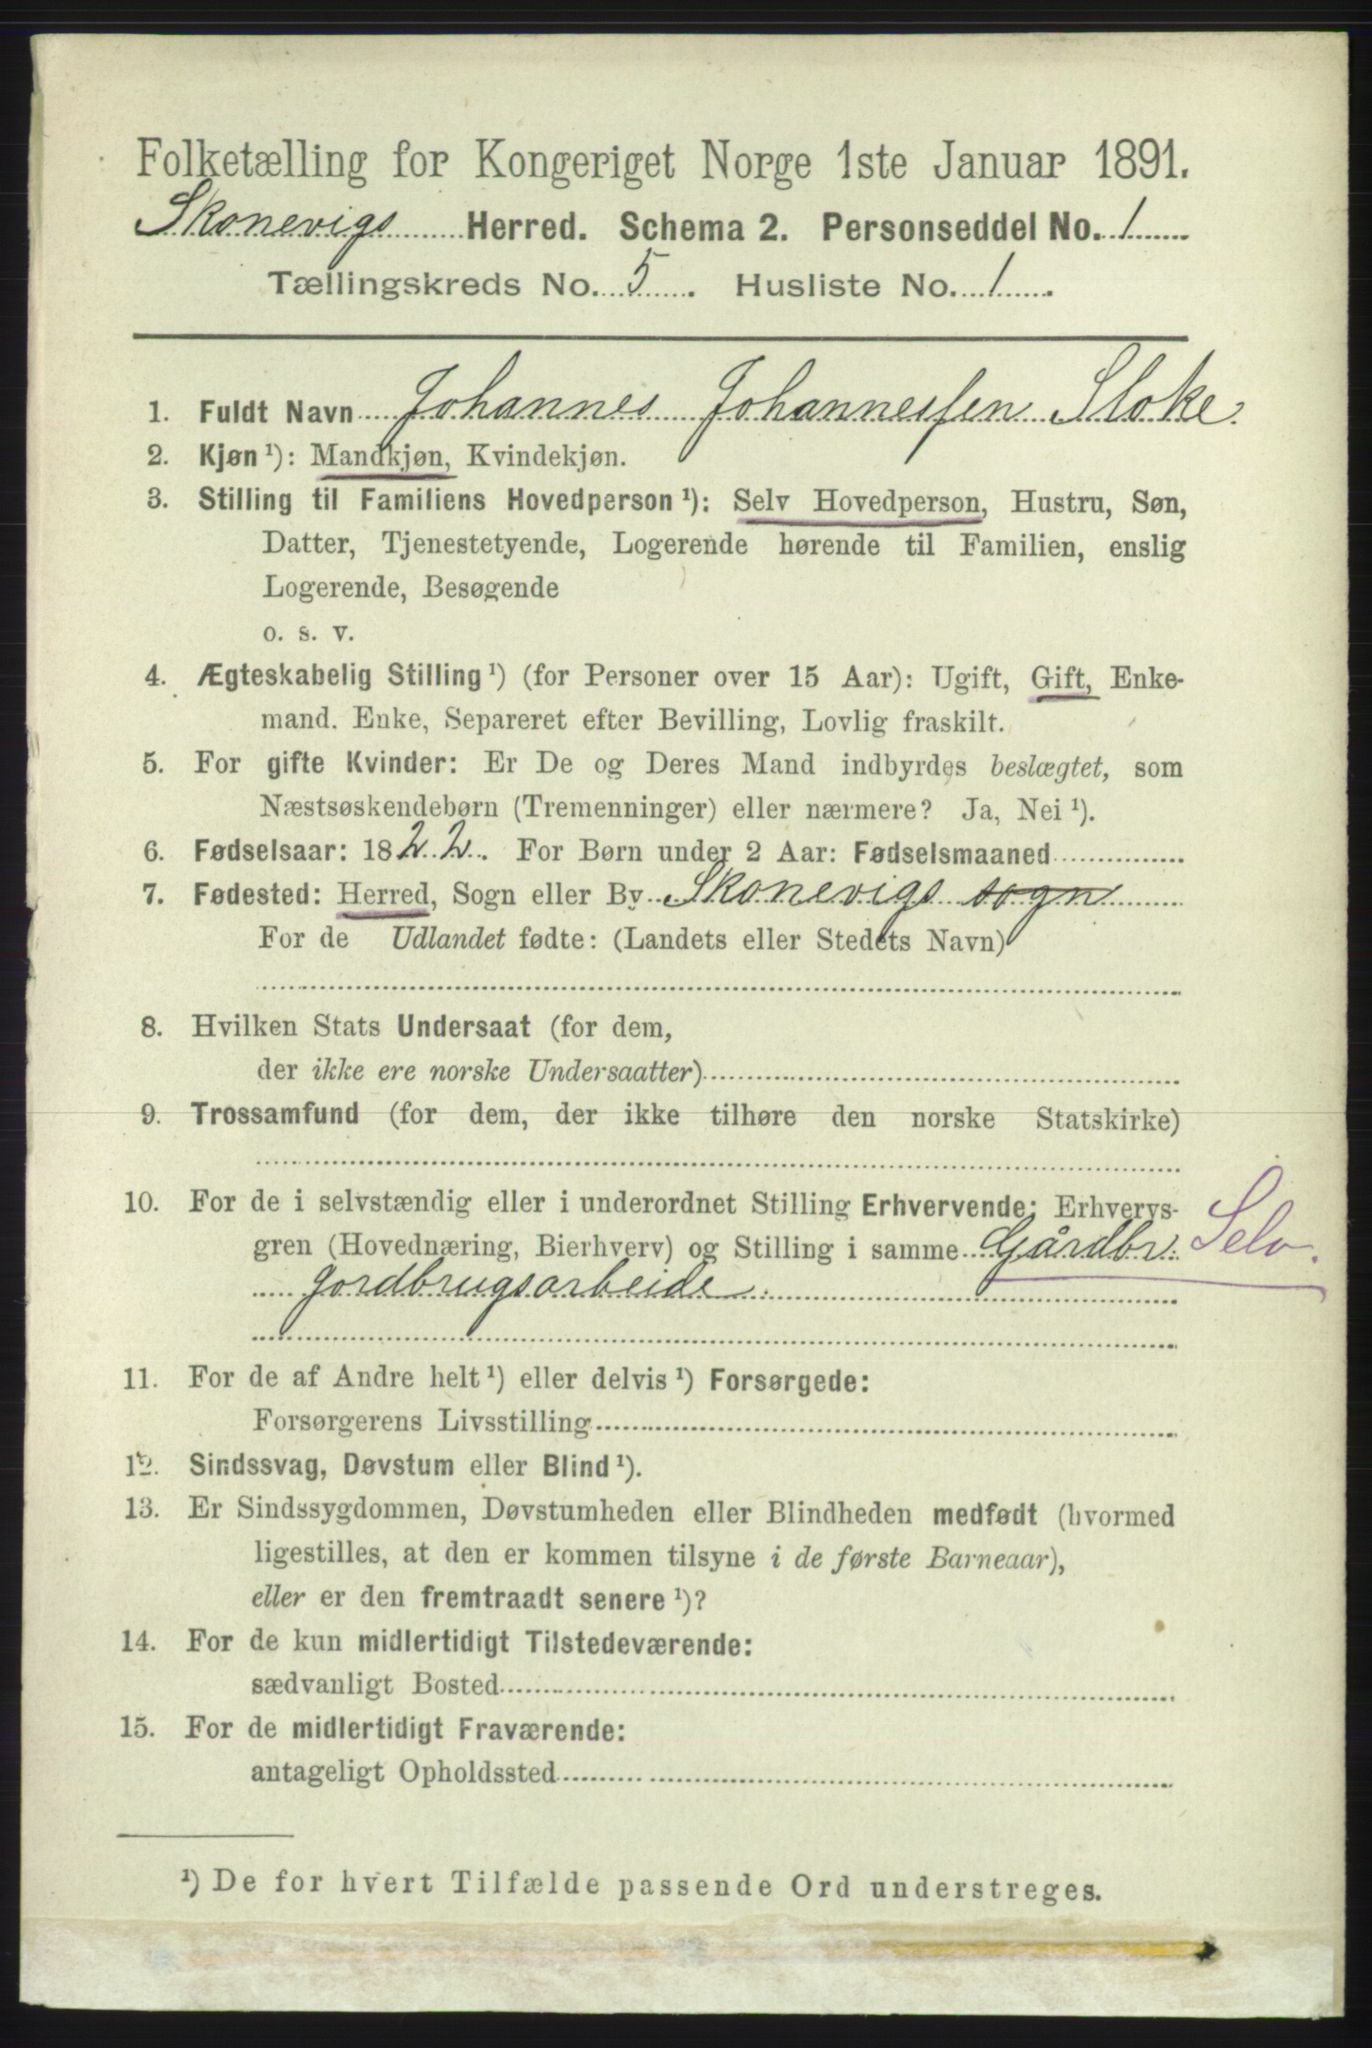 Folketælling for Kongeriget Norge 1ste Januar 1891.
Skonevigs Herred. Schema 2. Personseddel No. 1
Tællingskreds No. 5. Husliste No. 1.
1. Fuldt Navn Johannes Johannessen Stoke
2. Kjøn ¹): Mandkjøn, Kvindekjøn.
3. Stilling til Familiens Hovedperson ¹): Selv Hovedperson, Hustru, Søn,
Datter, Tjenestetyende, Logerende hørende til Familien, enslig
Logerende, Besøgende
o. s. v.
4. Ægteskabelig Stilling ¹) (for Personer over 15 Aar): Ugift, Gift, Enke-
mand. Enke, Separeret efter Bevilling, Lovlig fraskilt.
5. For gifte Kvinder: Er De og Deres Mand indbyrdes beslægtet, som
Næstsøskendebørn (Tremenninger) eller nærmere? Ja, Nei ¹).
6. Fødselsaar: 1822. For Børn under 2 Aar: Fødselsmaaned
7. Fødested: Herred, Sogn eller By Skonevigs sogn
For de Udlandet fødte: (Landets eller Stedets Navn)
8. Hvilken Stats Undersaat (for dem,
der ikke ere norske Undersaatter)
9. Trossamfund (for dem, der ikke tilhøre den norske Statskirke)
10. For de i selvstændig eller i underordnet Stilling Erhvervende: Erhvervs-
gren (Hovednæring, Bierhverv) og Stilling i samme Gårdbr. Selv.
jordbrugsarbeide.
11. For de af Andre helt ¹) eller delvis ¹) Forsørgede:
Forsørgerens Livsstilling
12. Sindssvag, Døvstum eller Blind ¹).
13. Er Sindssygdommen, Døvstumheden eller Blindheden medfødt (hvormed
ligestilles, at den er kommen tilsyne i de første Barneaar),
eller er den fremtraadt senere ¹)?
14. For de kun midlertidigt Tilstedeværende:
sædvanligt Bosted
15. For de midlertidigt Fraværende:
antageligt Opholdssted
¹) De for hvert Tilfælde passende Ord understreges.